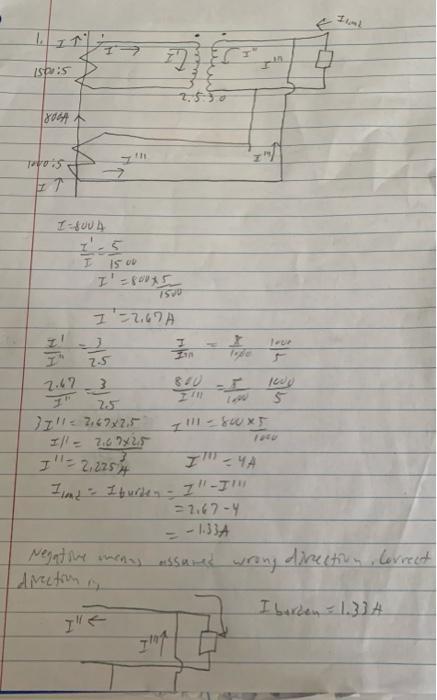 1.
I ↑
I' →
I'
I"
I"
← I load
1500:5
2.5:3.0
800A
1000:5
I''' →
I'''
I ↑
I=800A
I'/I = 5/1500
I' = 800×5/1500
I' = 2.67A
I'/I" = 3/2.5
I/I''' = 1000/5
2.67/I" = 3/2.5
800/I''' = 1000/5
3I" = 2.67×2.5
I''' = 800×5/1000
I" = 2.67×2.5/3
I" = 2.225A
I''' = 4A
I load = I burden = I" - I'''
= 2.67 - 4
= -1.33A
Negative means assumed wrong direction. Correct
direction is
I" ←
I''' ↑
I burden = 1.33A